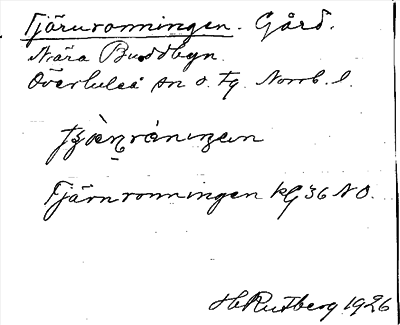 Tjärnronningen. Gård.
Nära Buddbyn.
Överluleå sn o. tg. Norrb. l.
Tjärnronningen kg 36 NO.
H Rutberg 1926